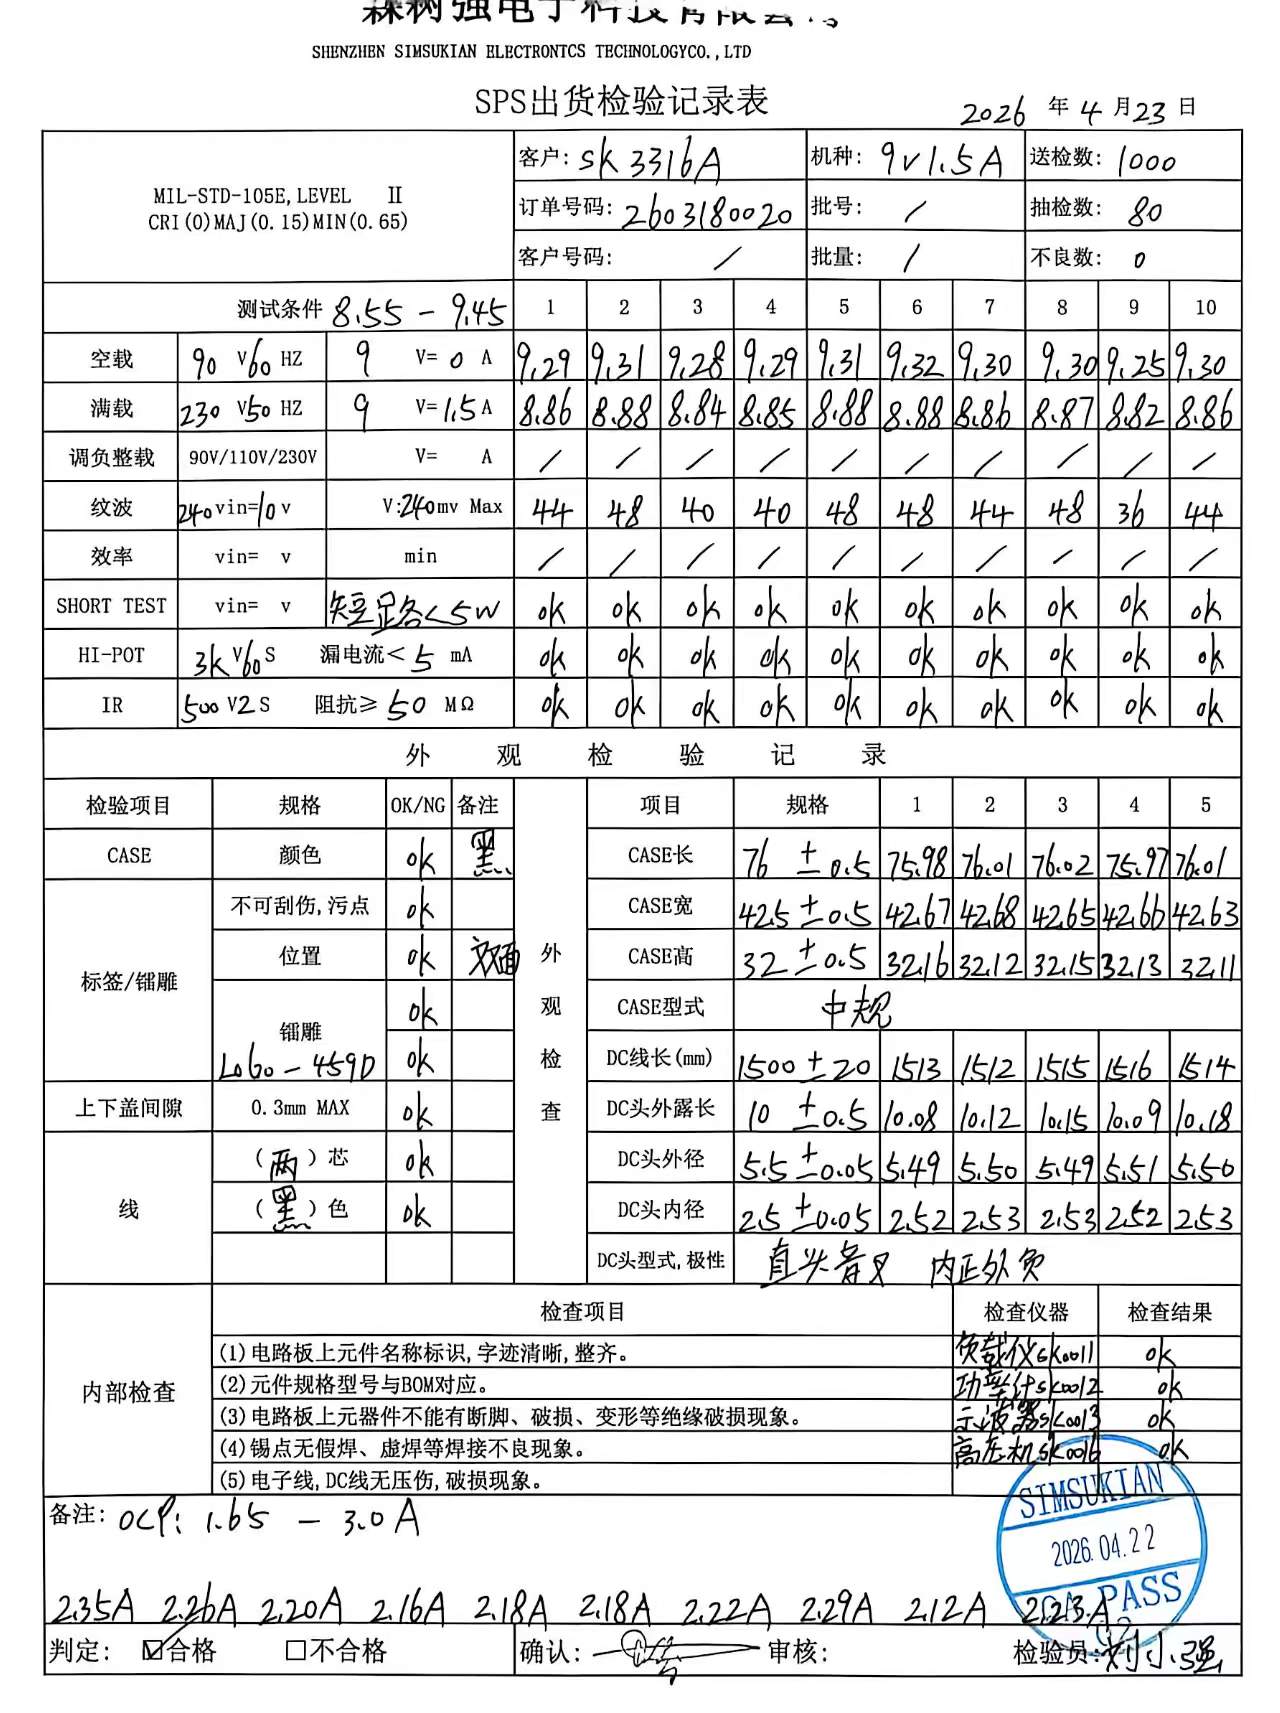 森树强电子科技有限公司
SHENZHEN SIMSUKIAN ELECTRONTCS TECHNOLOGYCO.,LTD
SPS出货检验记录表
2026 年 4 月 23 日
MIL-STD-105E,LEVEL Ⅱ
CRI(0)MAJ(0.15)MIN(0.65)
客户: SK3316A 机种: 9V1.5A 送检数: 1000
订单号码: 2603180020 批号: / 抽检数: 80
客户号码: / 批量: / 不良数: 0
测试条件 8.55 - 9.45 1 2 3 4 5 6 7 8 9 10
空载 90 V 60 HZ 9 V= 0 A 9.29 9.31 9.28 9.29 9.31 9.32 9.30 9.30 9.25 9.30
满载 230 V 50 HZ 9 V= 1.5 A 8.86 8.88 8.84 8.85 8.88 8.88 8.86 8.87 8.82 8.86
调负整载 90V/110V/230V V= A / / / / / / / / / /
纹波 240 vin=10 v V:240mv Max 44 48 40 40 48 48 44 48 36 44
效率 vin= v min / / / / / / / / / /
SHORT TEST vin= v 短路<5W ok ok ok ok ok ok ok ok ok ok
HI-POT 3K V 60 S 漏电流< 5 mA ok ok ok ok ok ok ok ok ok ok
IR 500 V 2 S 阻抗≥ 50 MΩ ok ok ok ok ok ok ok ok ok ok
外观检验记录
检验项目 规格 OK/NG 备注 外观检查 项目 规格 1 2 3 4 5
CASE 颜色 ok 黑 CASE长 76 ±0.5 75.98 76.01 76.02 75.97 76.01
标签/镭雕 不可刮伤,污点 ok CASE宽 42.5 ±0.5 42.67 42.68 42.65 42.66 42.63
位置 ok 双面 CASE高 32 ±0.5 32.16 32.12 32.15 32.13 32.11
镭雕 ok CASE型式 中规
LoGo-459D ok DC线长(mm) 1500 ±20 1513 1512 1515 1516 1514
上下盖间隙 0.3mm MAX ok DC头外露长 10 ±0.5 10.08 10.12 10.15 10.09 10.18
线 (两)芯 ok DC头外径 5.5 ±0.05 5.49 5.50 5.49 5.51 5.50
(黑)色 ok DC头内径 2.5 ±0.05 2.52 2.53 2.53 2.52 2.53
DC头型式,极性 直头音叉 内正外负
内部检查 检查项目 检查仪器 检查结果
(1)电路板上元件名称标识,字迹清晰,整齐。 负载仪SK0011 ok
(2)元件规格型号与BOM对应。 功率计SK0012 ok
(3)电路板上元器件不能有断脚、破损、变形等绝缘破损现象。 示波器SK0013 ok
(4)锡点无假焊、虚焊等焊接不良现象。 高压机SK0016 ok
(5)电子线,DC线无压伤,破损现象。
备注: OCP: 1.65 - 3.0A
SIMSUKIAN
2026.04.22
QA PASS
02
2.35A 2.26A 2.20A 2.16A 2.18A 2.18A 2.22A 2.29A 2.12A 2.23A
判定: ☑合格 □不合格 确认: 审核: 检验员: 刘小强